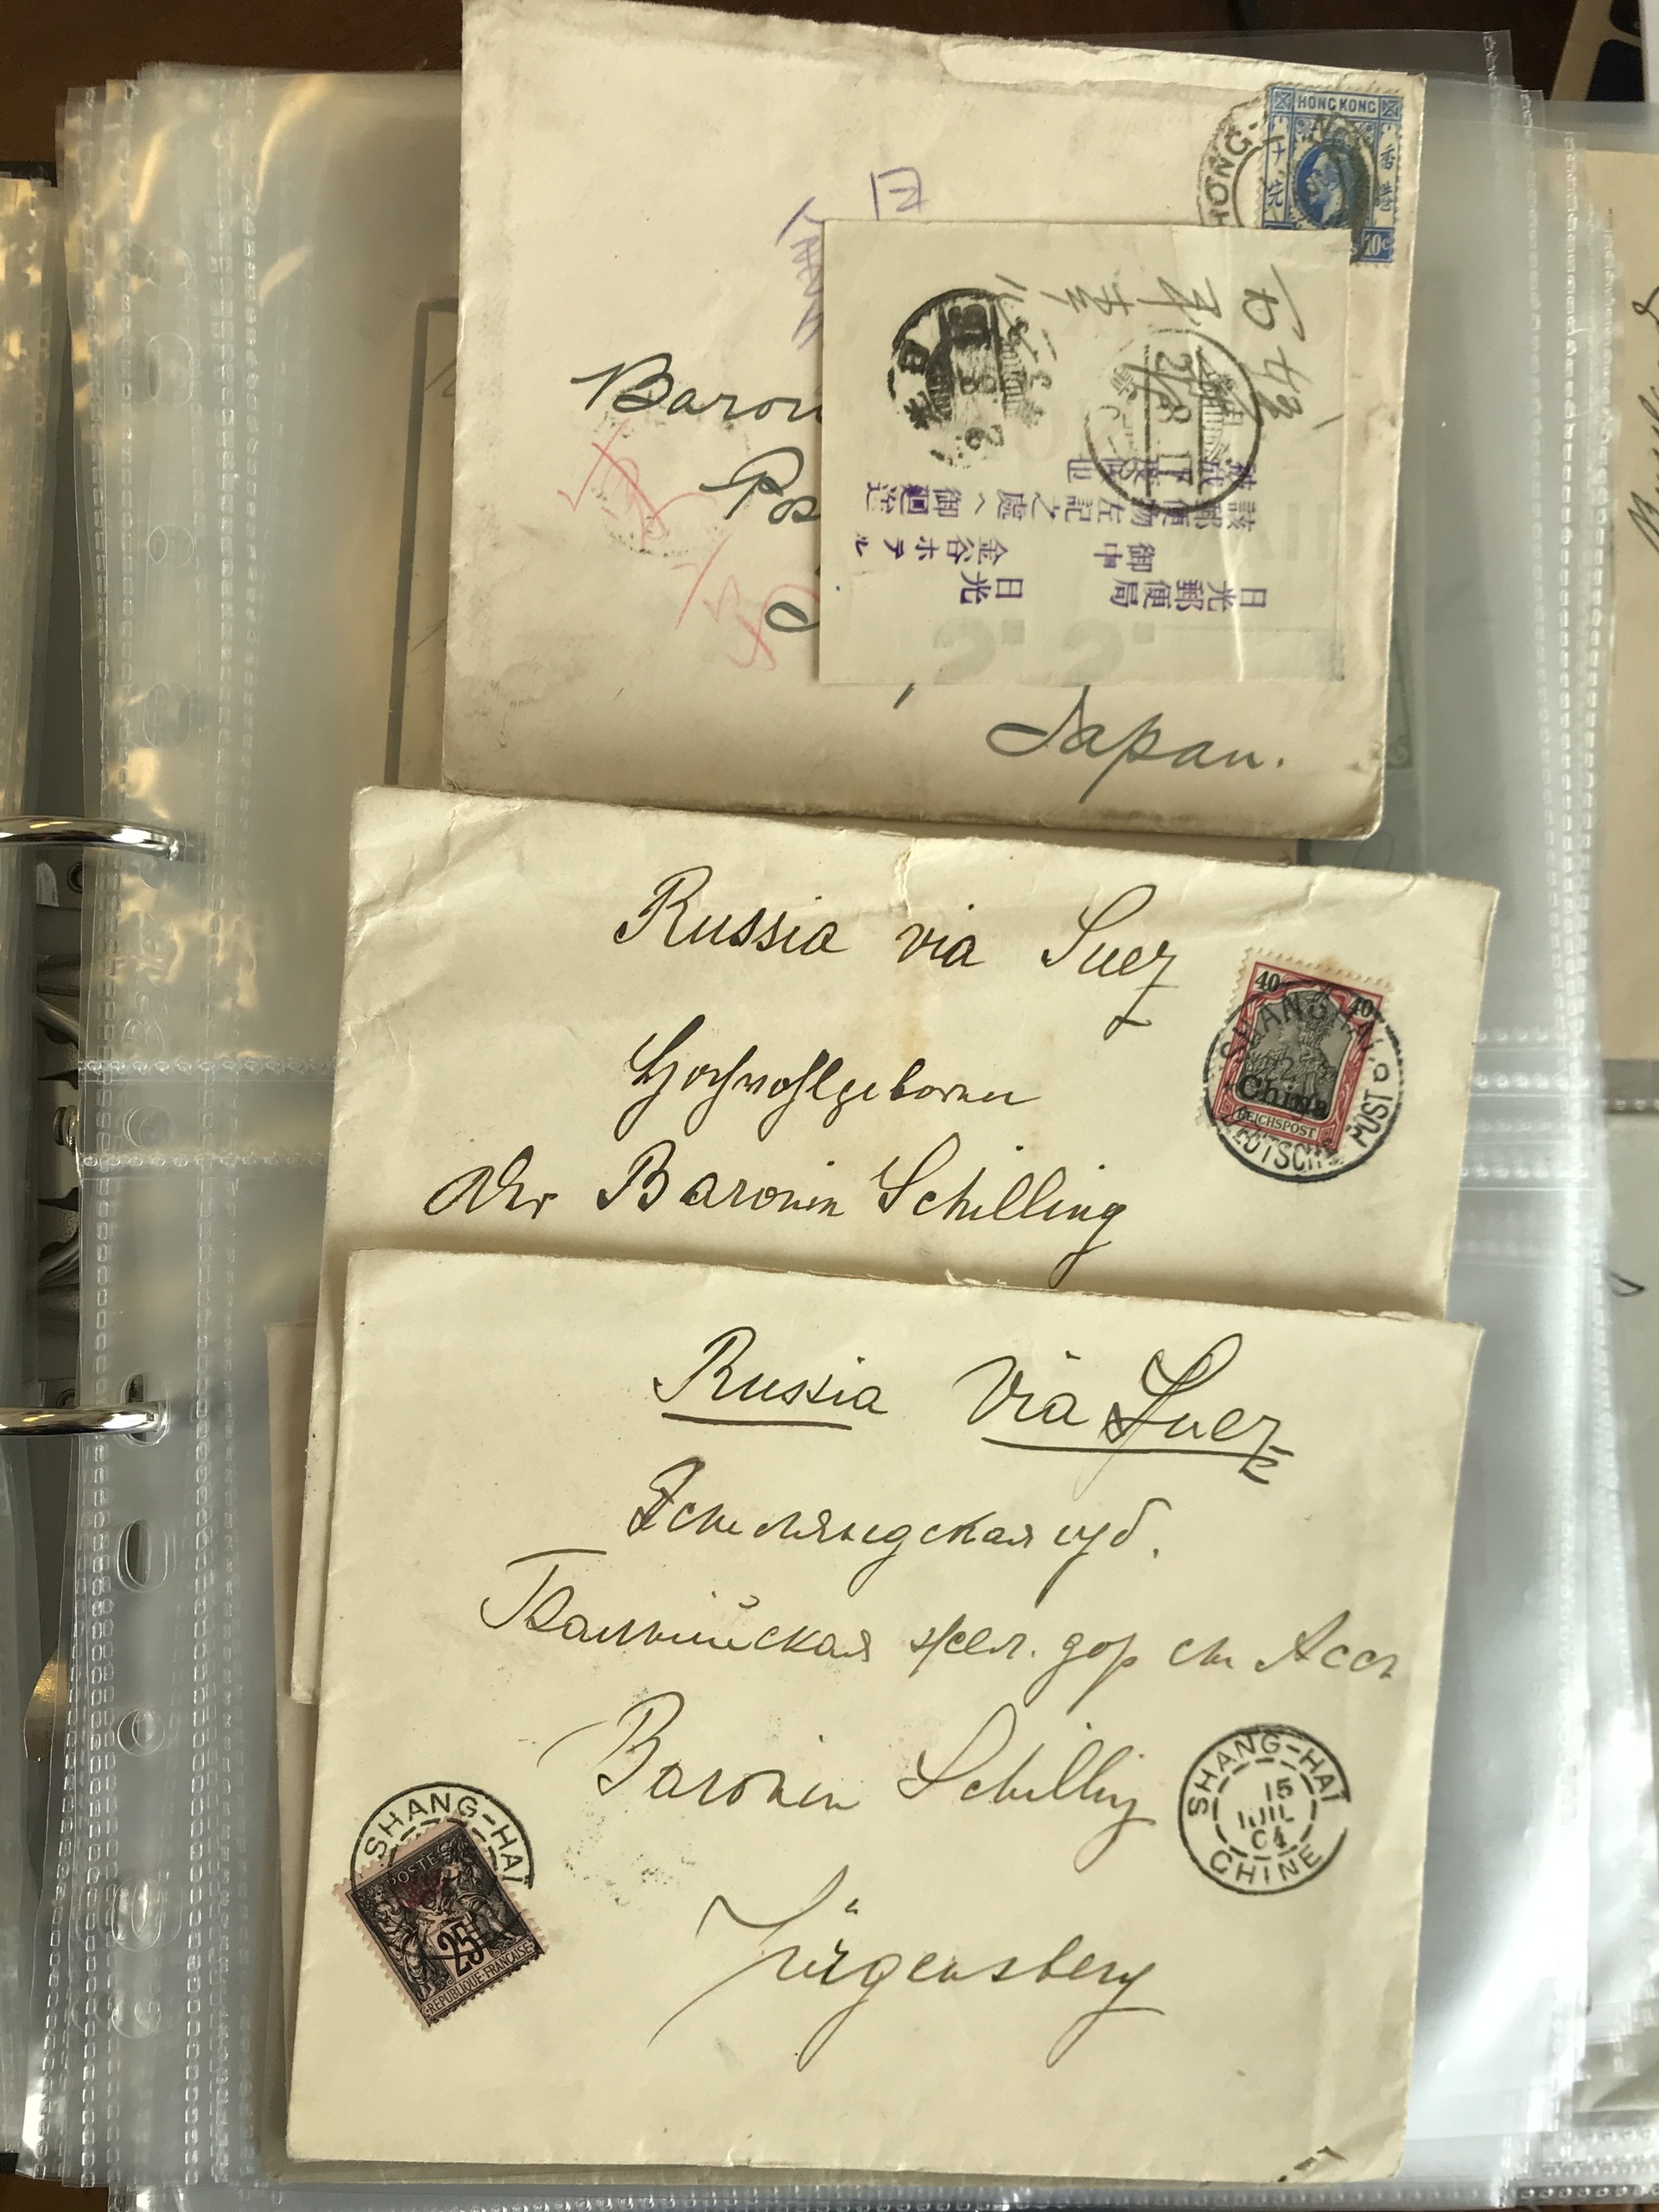 HONG KONG
香港
10c
HONG-
Baron
Pos
Japan.
日光郵便局
御中
日光
金谷ホテル
該郵便物左記之處へ御廻送
被成下度候也
Russia via Suez
40 40
China
REICHSPOST
SHANGHAI a
DEUTSCHE POST
Hochwohlgeboren
der Baronin Schilling
Russia Via Suez
Эстляндская губ.
Балтийская жел. дор ст Асс
Baronin Schilling
SHANG-HAI
15
JUIL
04
CHINE
SHANG-HAI
POSTES
25
REPUBLIQUE FRANCAISE
Jürgensberg